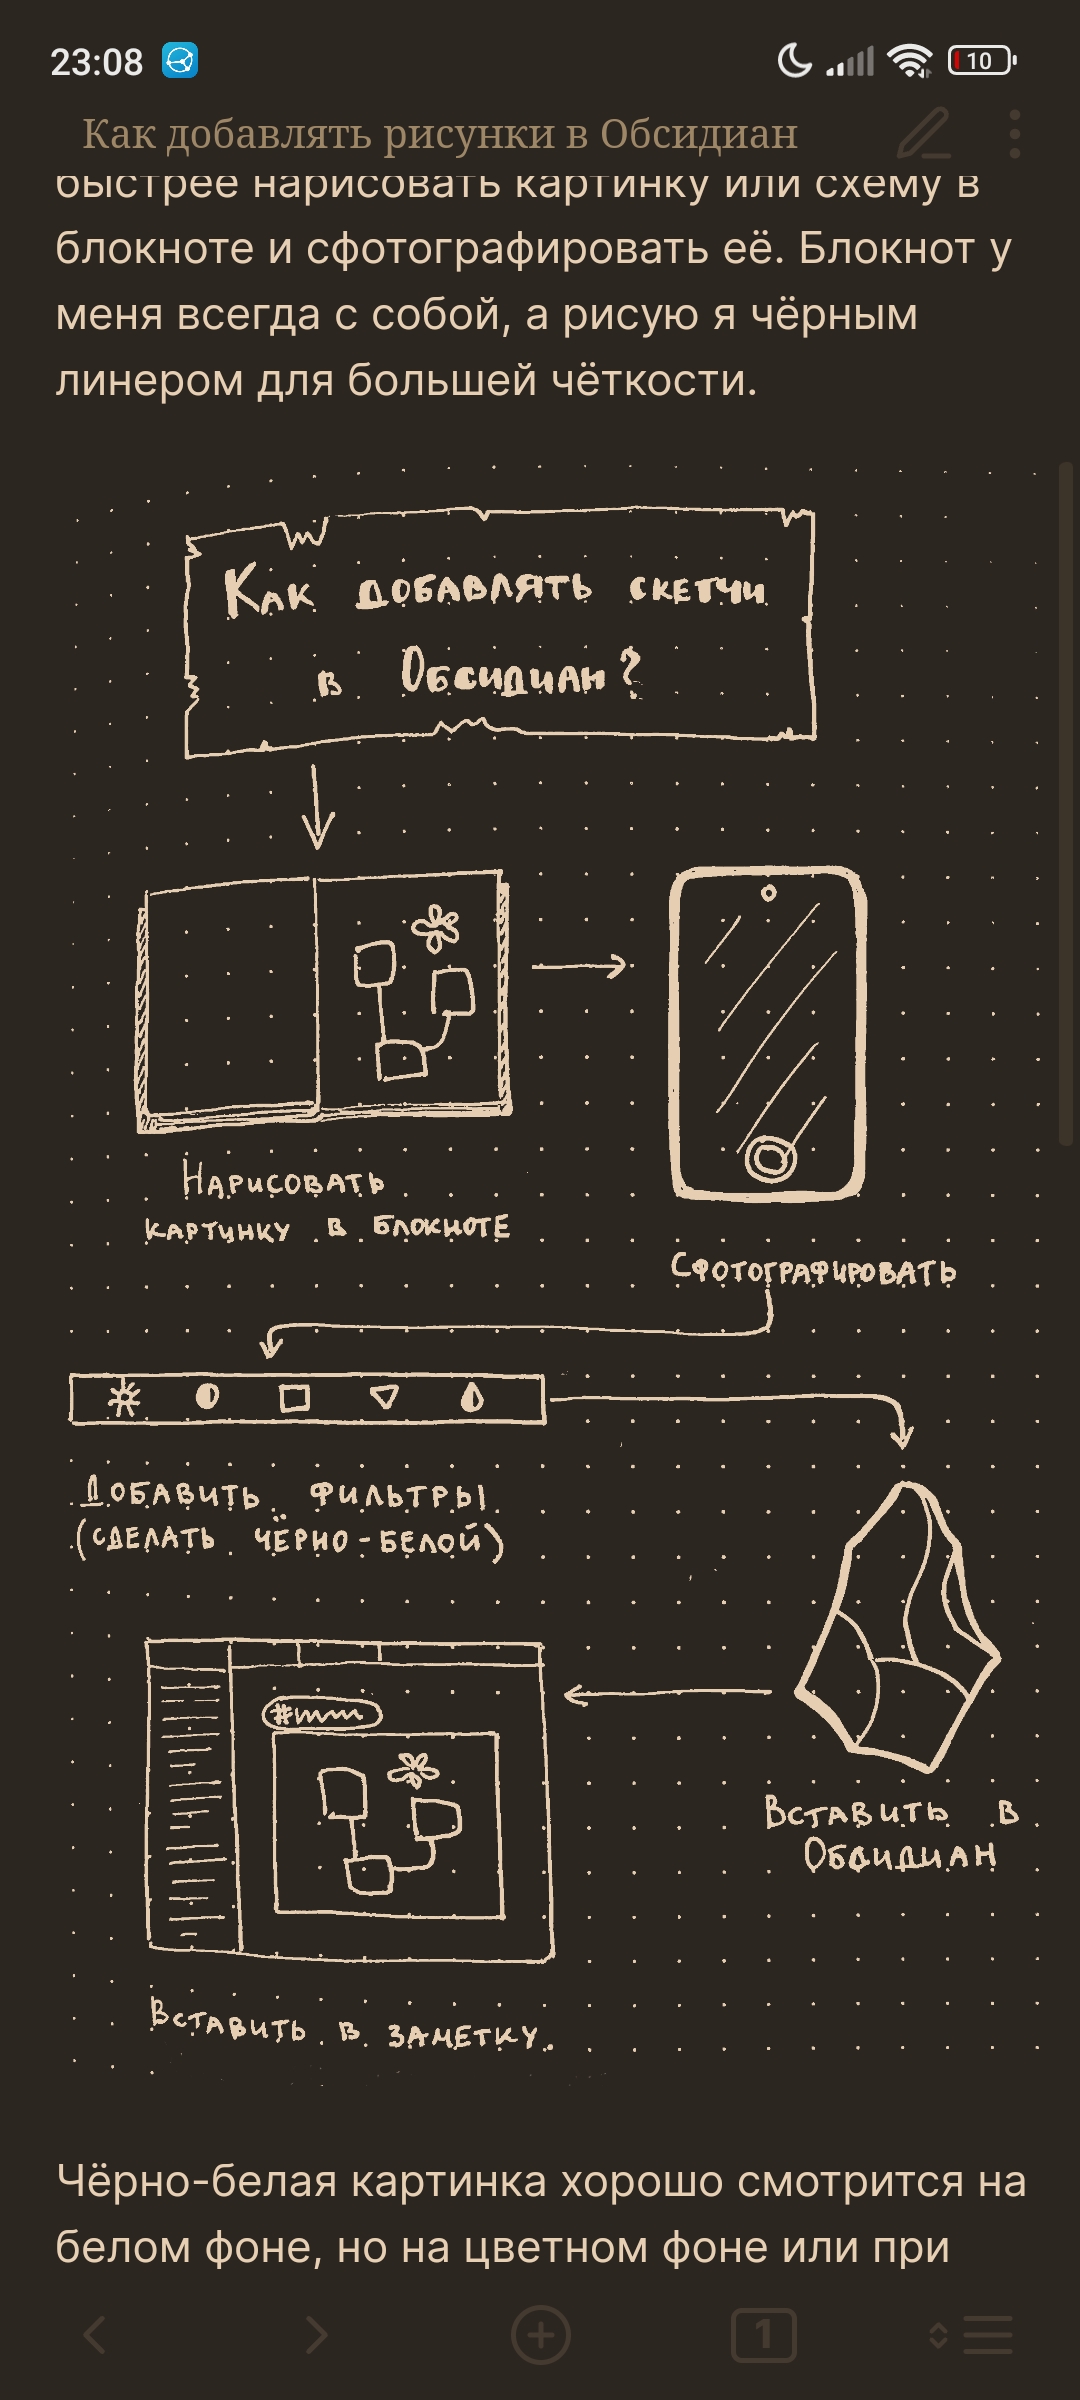 23:08
10
Как добавлять рисунки в Обсидиан
быстрее нарисовать картинку или схему в
блокноте и сфотографировать её. Блокнот у
меня всегда с собой, а рисую я чёрным
линером для большей чёткости.
Как добавлять скетчи
в Обсидиан?
Нарисовать
картинку в блокноте
Сфотографировать
Добавить фильтры
(сделать чёрно-белой)
Вставить в
Обсидиан
Вставить в заметку.
Чёрно-белая картинка хорошо смотрится на
белом фоне, но на цветном фоне или при
1